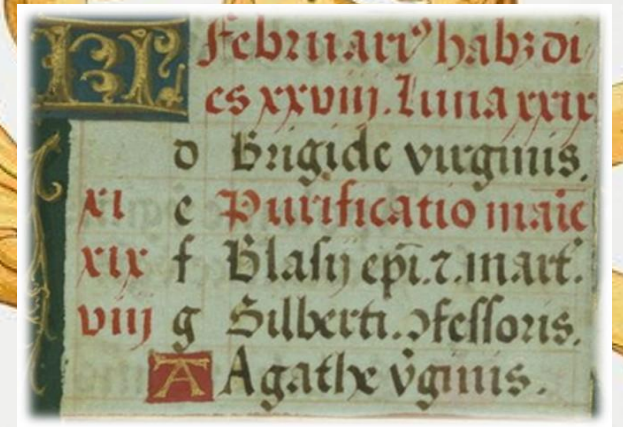 KL Februari9 habꝫ di
es xxviij. Luna xxix
d Brigide virginis.
xi e Purificatio marie
xix f Blasij epi. ⁊. mart.
viij g Gilberti. ꝯfessoris.
A Agathe vginis.